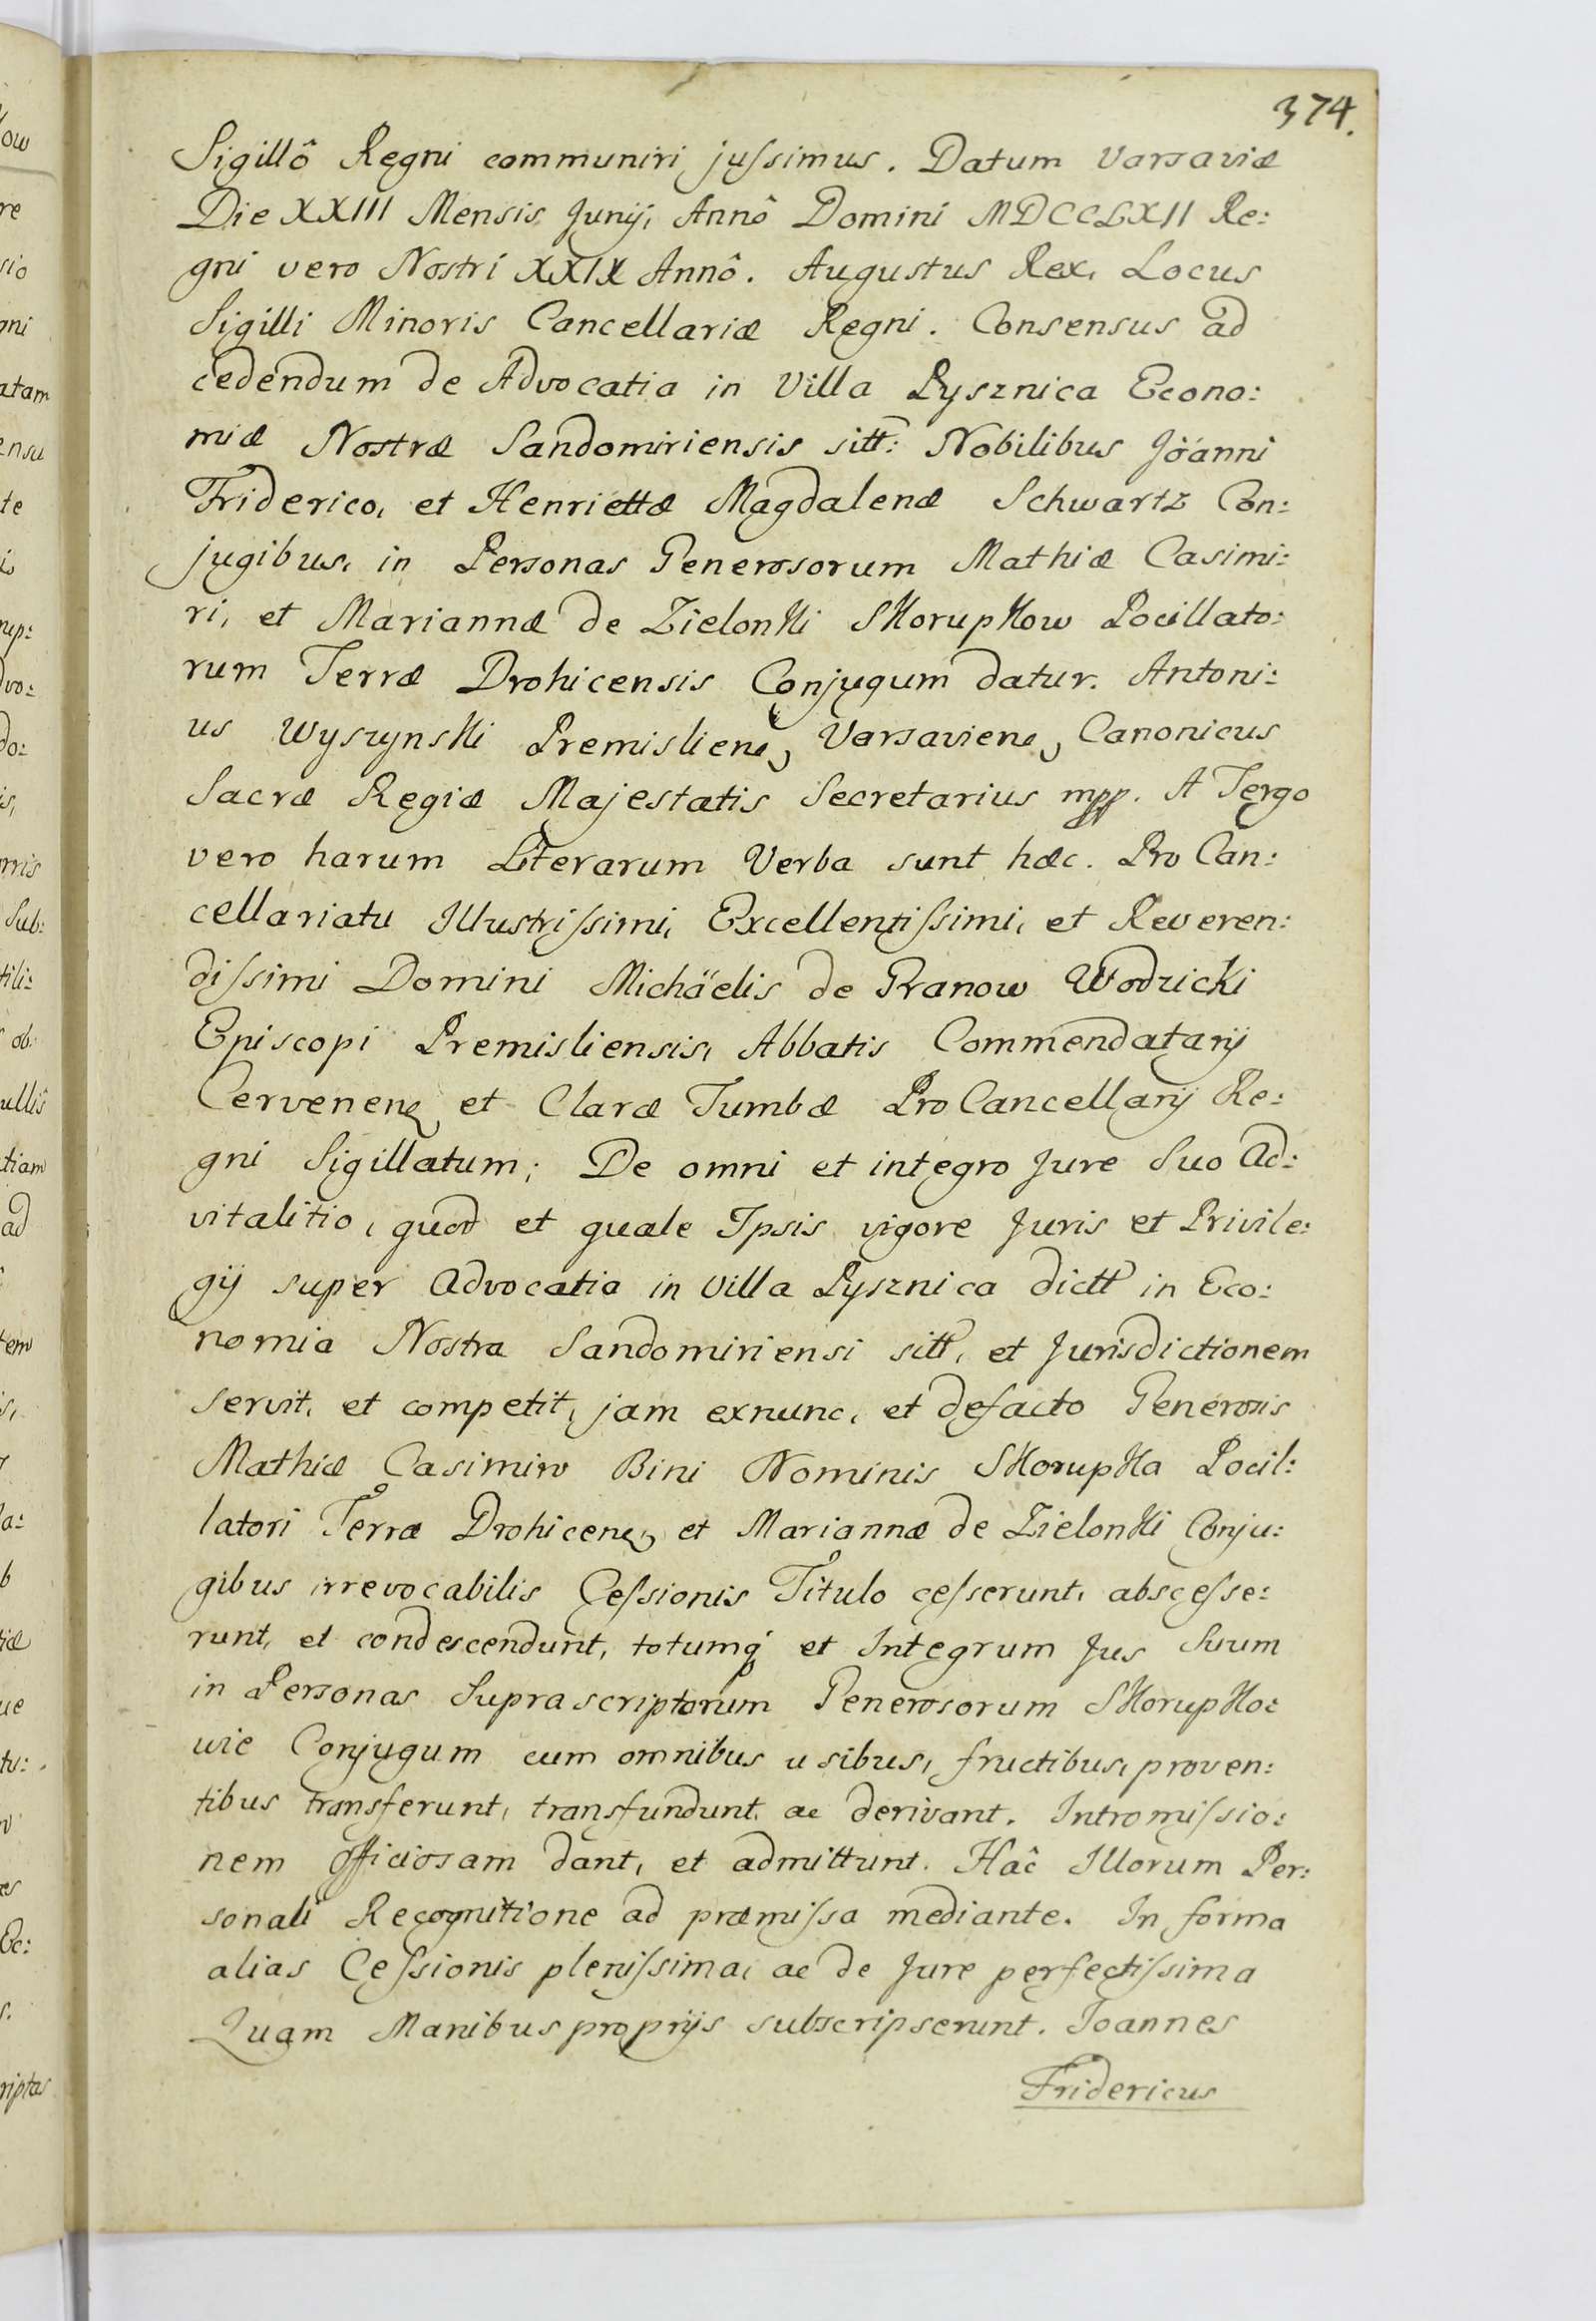 374.
Sigillô Regni communiri jussimus. Datum Varsaviæ
Die XXIII Mensis Junij, Annô Domini MDCCLXII Re:
gni vero Nostri XXIX Annô. Augustus Rex, Locus
Sigilli Minoris Cancellariæ Regni. Consensus ad
cedendum de Advocatia in Villa Pysznica Econo:
miæ Nostræ Sandomiriensis sitt: Nobilibus Joanni
Friderico, et Henriettæ Magdalenæ Schwartz Con:
jugibus, in Personas Generosorum Mathiæ Casimi:
ri, et Mariannæ de Zielonki Skorupkow Pocillato:
rum Terræ Drohicensis Conjugum datur. Antoni:
us Wyszynski Premislien, Varsavien, Canonicus
Sacræ Regiæ Majestatis Secretarius mpp. A Tergo
vero harum Literarum Verba sunt hæc. Pro Can:
cellariatu Illustrissimi, Excellentissimi, et Reveren:
dissimi Domini Michäelis de Granow Wodzicki
Episcopi Premisliensis, Abbatis Commendatarij
Cervenen et Claræ Tumbæ ProCancellarij Re:
gni Sigillatum; De omni et integro Jure Suo Ad:
vitalitio, quod et quale Ipsis vigore Juris et Privile:
gij super Advocatia in Villa Pysznica dictt in Eco:
nomia Nostra Sandomiriensi sitt, et Jurisdictionem
servit, et competit, jam exnunc, et defacto Generosis
Mathiæ Casimiro Bini Nominis Skorupka Pocil:
latori Terræ Drohicen, et Mariannæ de Zielonki Conju:
gibus irrevocabilis Cessionis Titulo cesserunt, abscesse:
runt, et condescendunt, totumq́ et Integrum Jus Suum
in Personas Suprascriptorum Generosorum Skorupko:
wie Conjugum cum omnibus usibus, fructibus, proven:
tibus transferunt, transfundunt ac derivant. Intromissio:
nem officiosam dant, et admittunt. Hâc Illorum Per:
sonali Recognitione ad præmissa mediante. In forma
alias Cessionis plenissima, ac de Jure perfectissima
Quam Manibus proprijs subscripserunt. Joannes
Fridericus